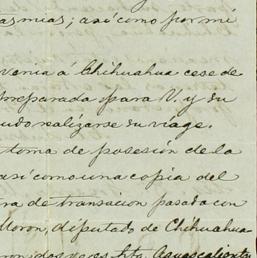 as mias; así como por mi
venia á Chihuahua cese de
preparada para V. y su
udo realizarse su viage.
toma de posesión de la
así como una copia del
ra de transacion pasada con
Moron, diputado de Chihuahua
Aguascalient